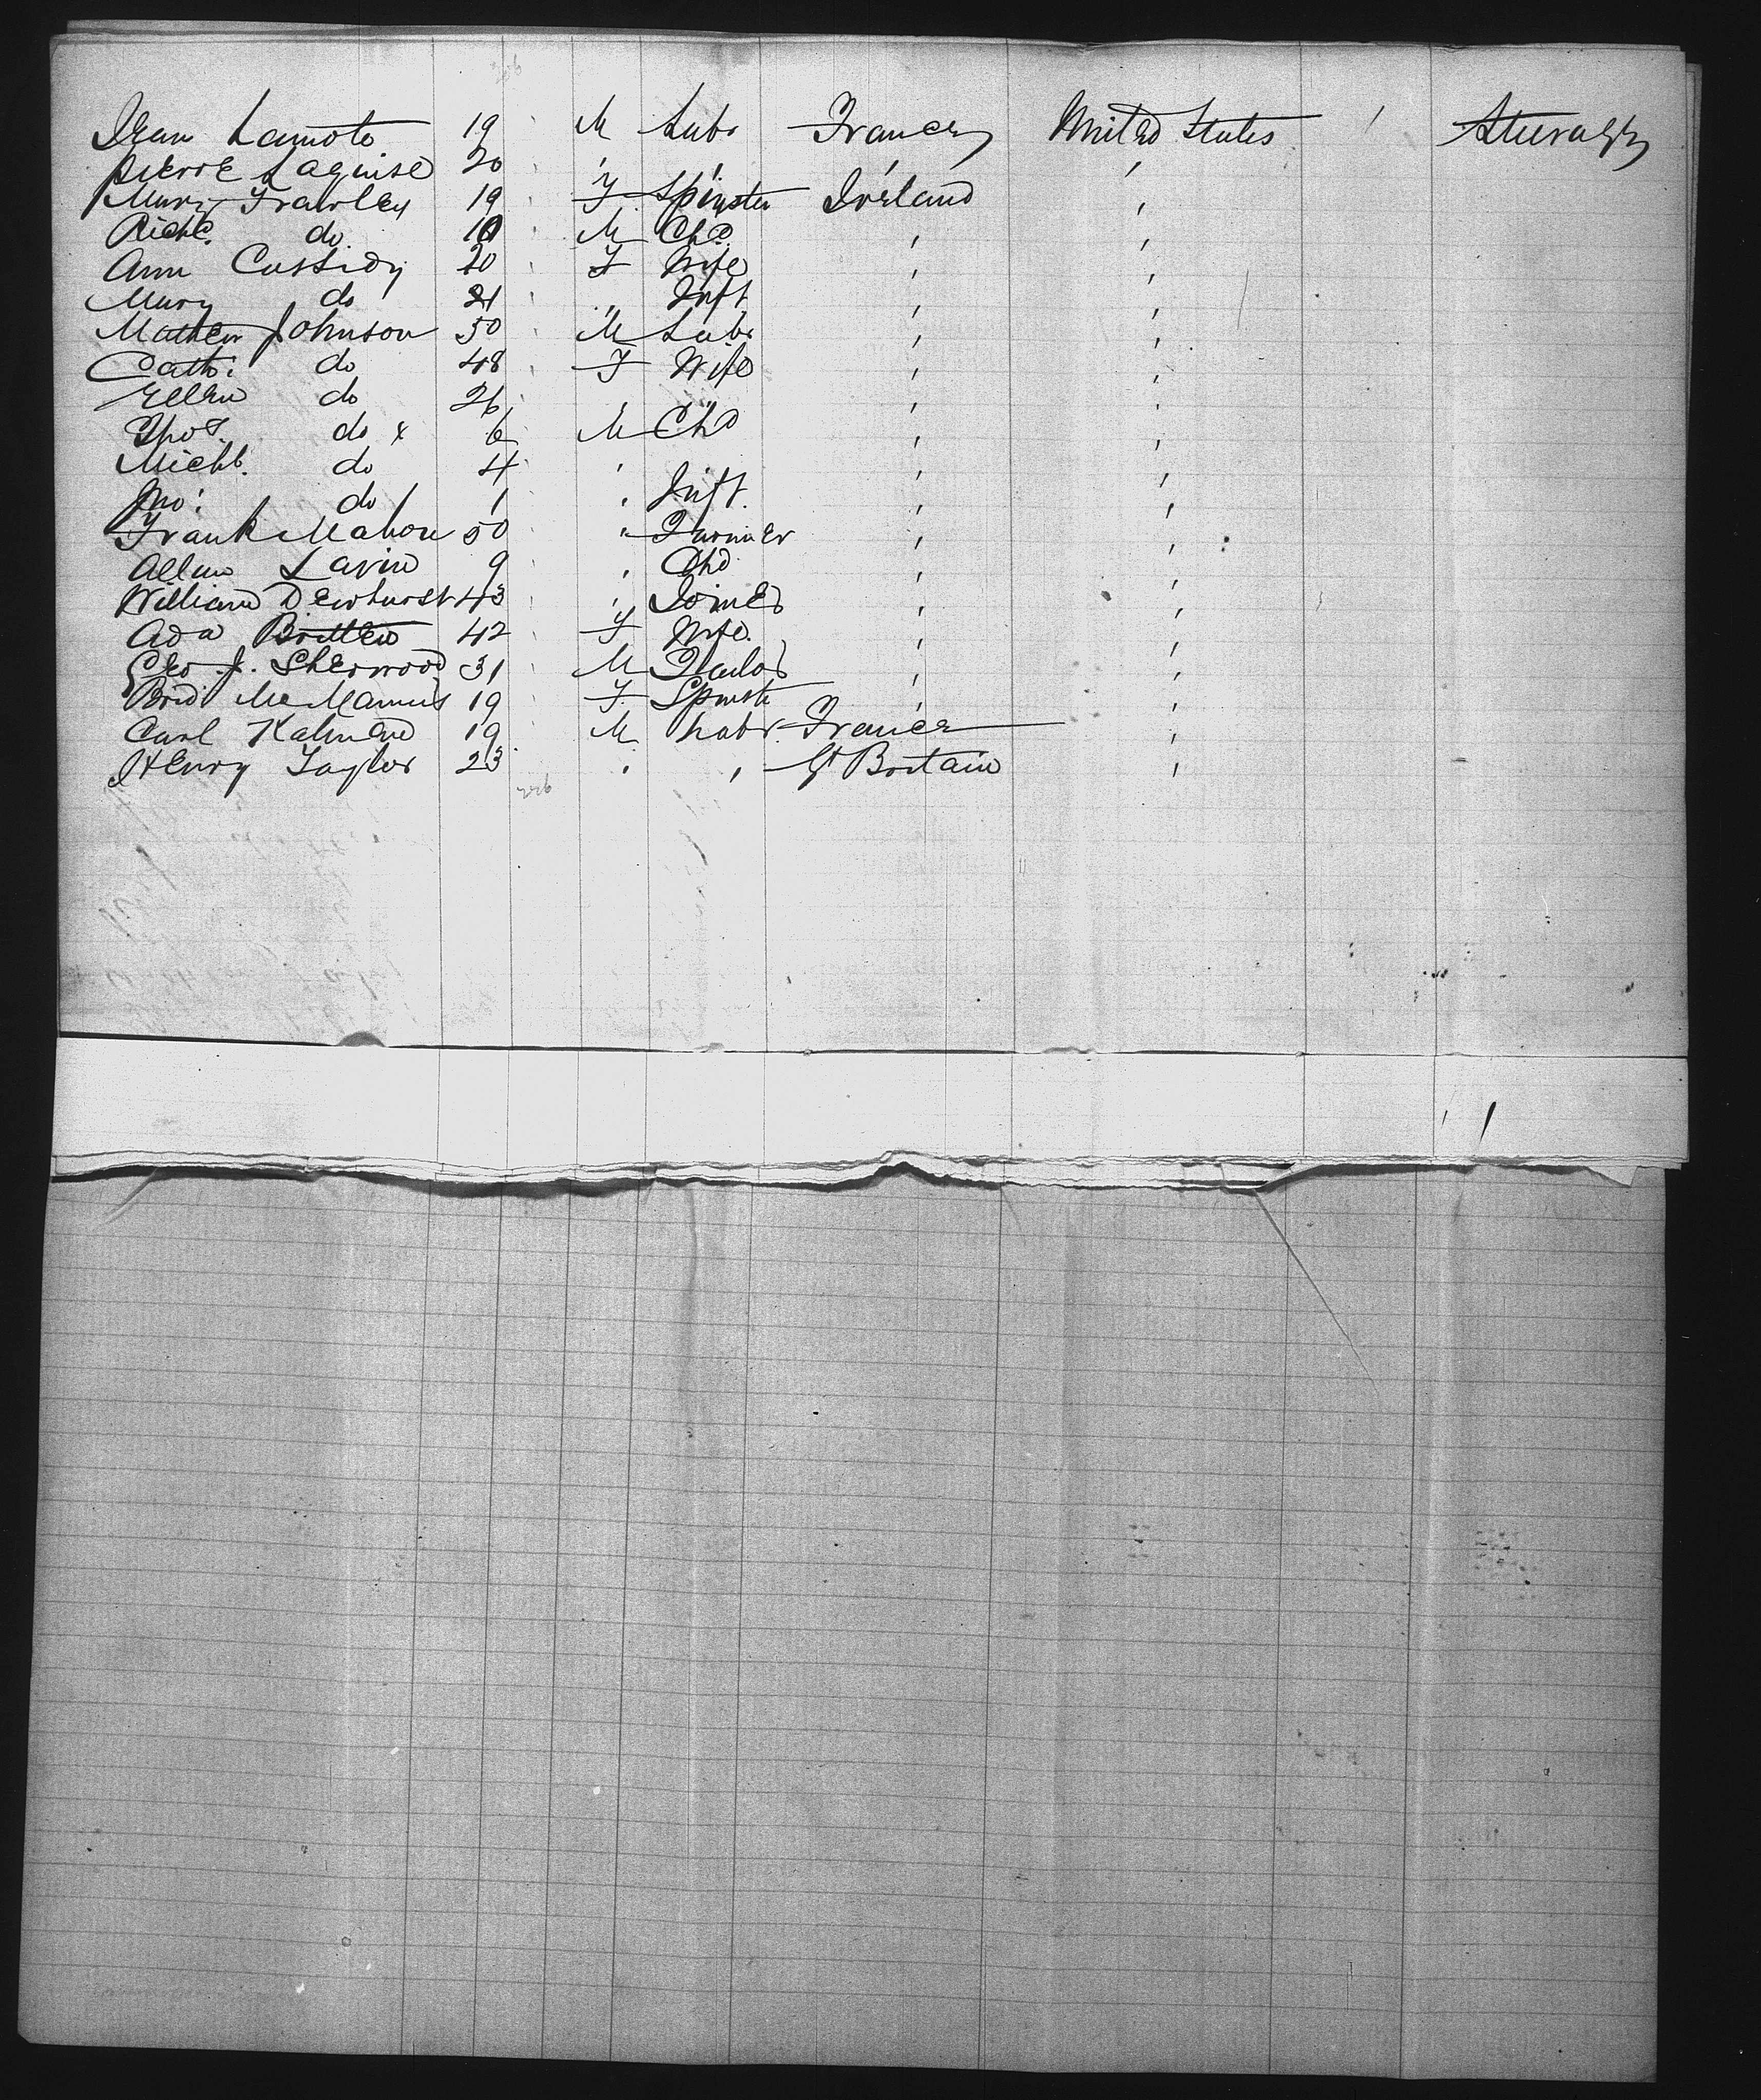 Jean Lamote 19 M Labr France United States ' Steerage
Pierre Laguise 20 ' ' ' '
Mary Frawley 19 F Spinster Ireland '
Richd. do 10 M Chd. ' '
Ann Cassidy 20 F Wife ' '
Mary do 21 " Inft ' '
Mathew Johnson 50 M Labr ' '
Cath: do 48 F Wife ' '
Ellen do 26 ' " ' '
Thos. do x 6 M Chd ' '
Michl. do 4 ' ' '
Jno: do 1 ' Inft. ' '
Frank Mahon 50 " Farmer ' '
Lavin 9 ' Chd ' '
William Dewhurst 43 ' Joiner ' '
Ada Britten 42 F Wife. ' '
Geo J. Sherwood 31 M Tailor ' '
Brid McManus 19 F Spinstr ' '
Carl 19 M Labr. France '
Henry Taylor 23 ' ' Gt Britain '
226